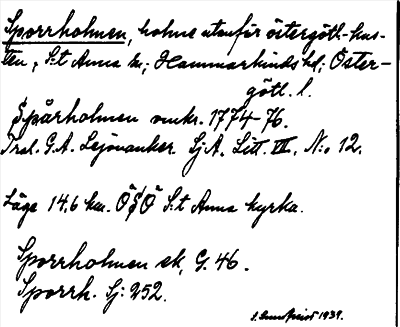 Sporrholmen, holme utanför östergötl.-kus-
ten, S:t Anna sn; Hammarkinds hd; Öster-
götl. l.
Spårholmen omkr. 1774-76.
Prol. G.A. Lejonanker. Sj.A. Litt. III. N:o 12.
Läge 14,6 km. ÖSÖ S:t Anna kyrka.
Sporrholmen ek, G. 46.
Sporrh. Sj: 252.
1939.